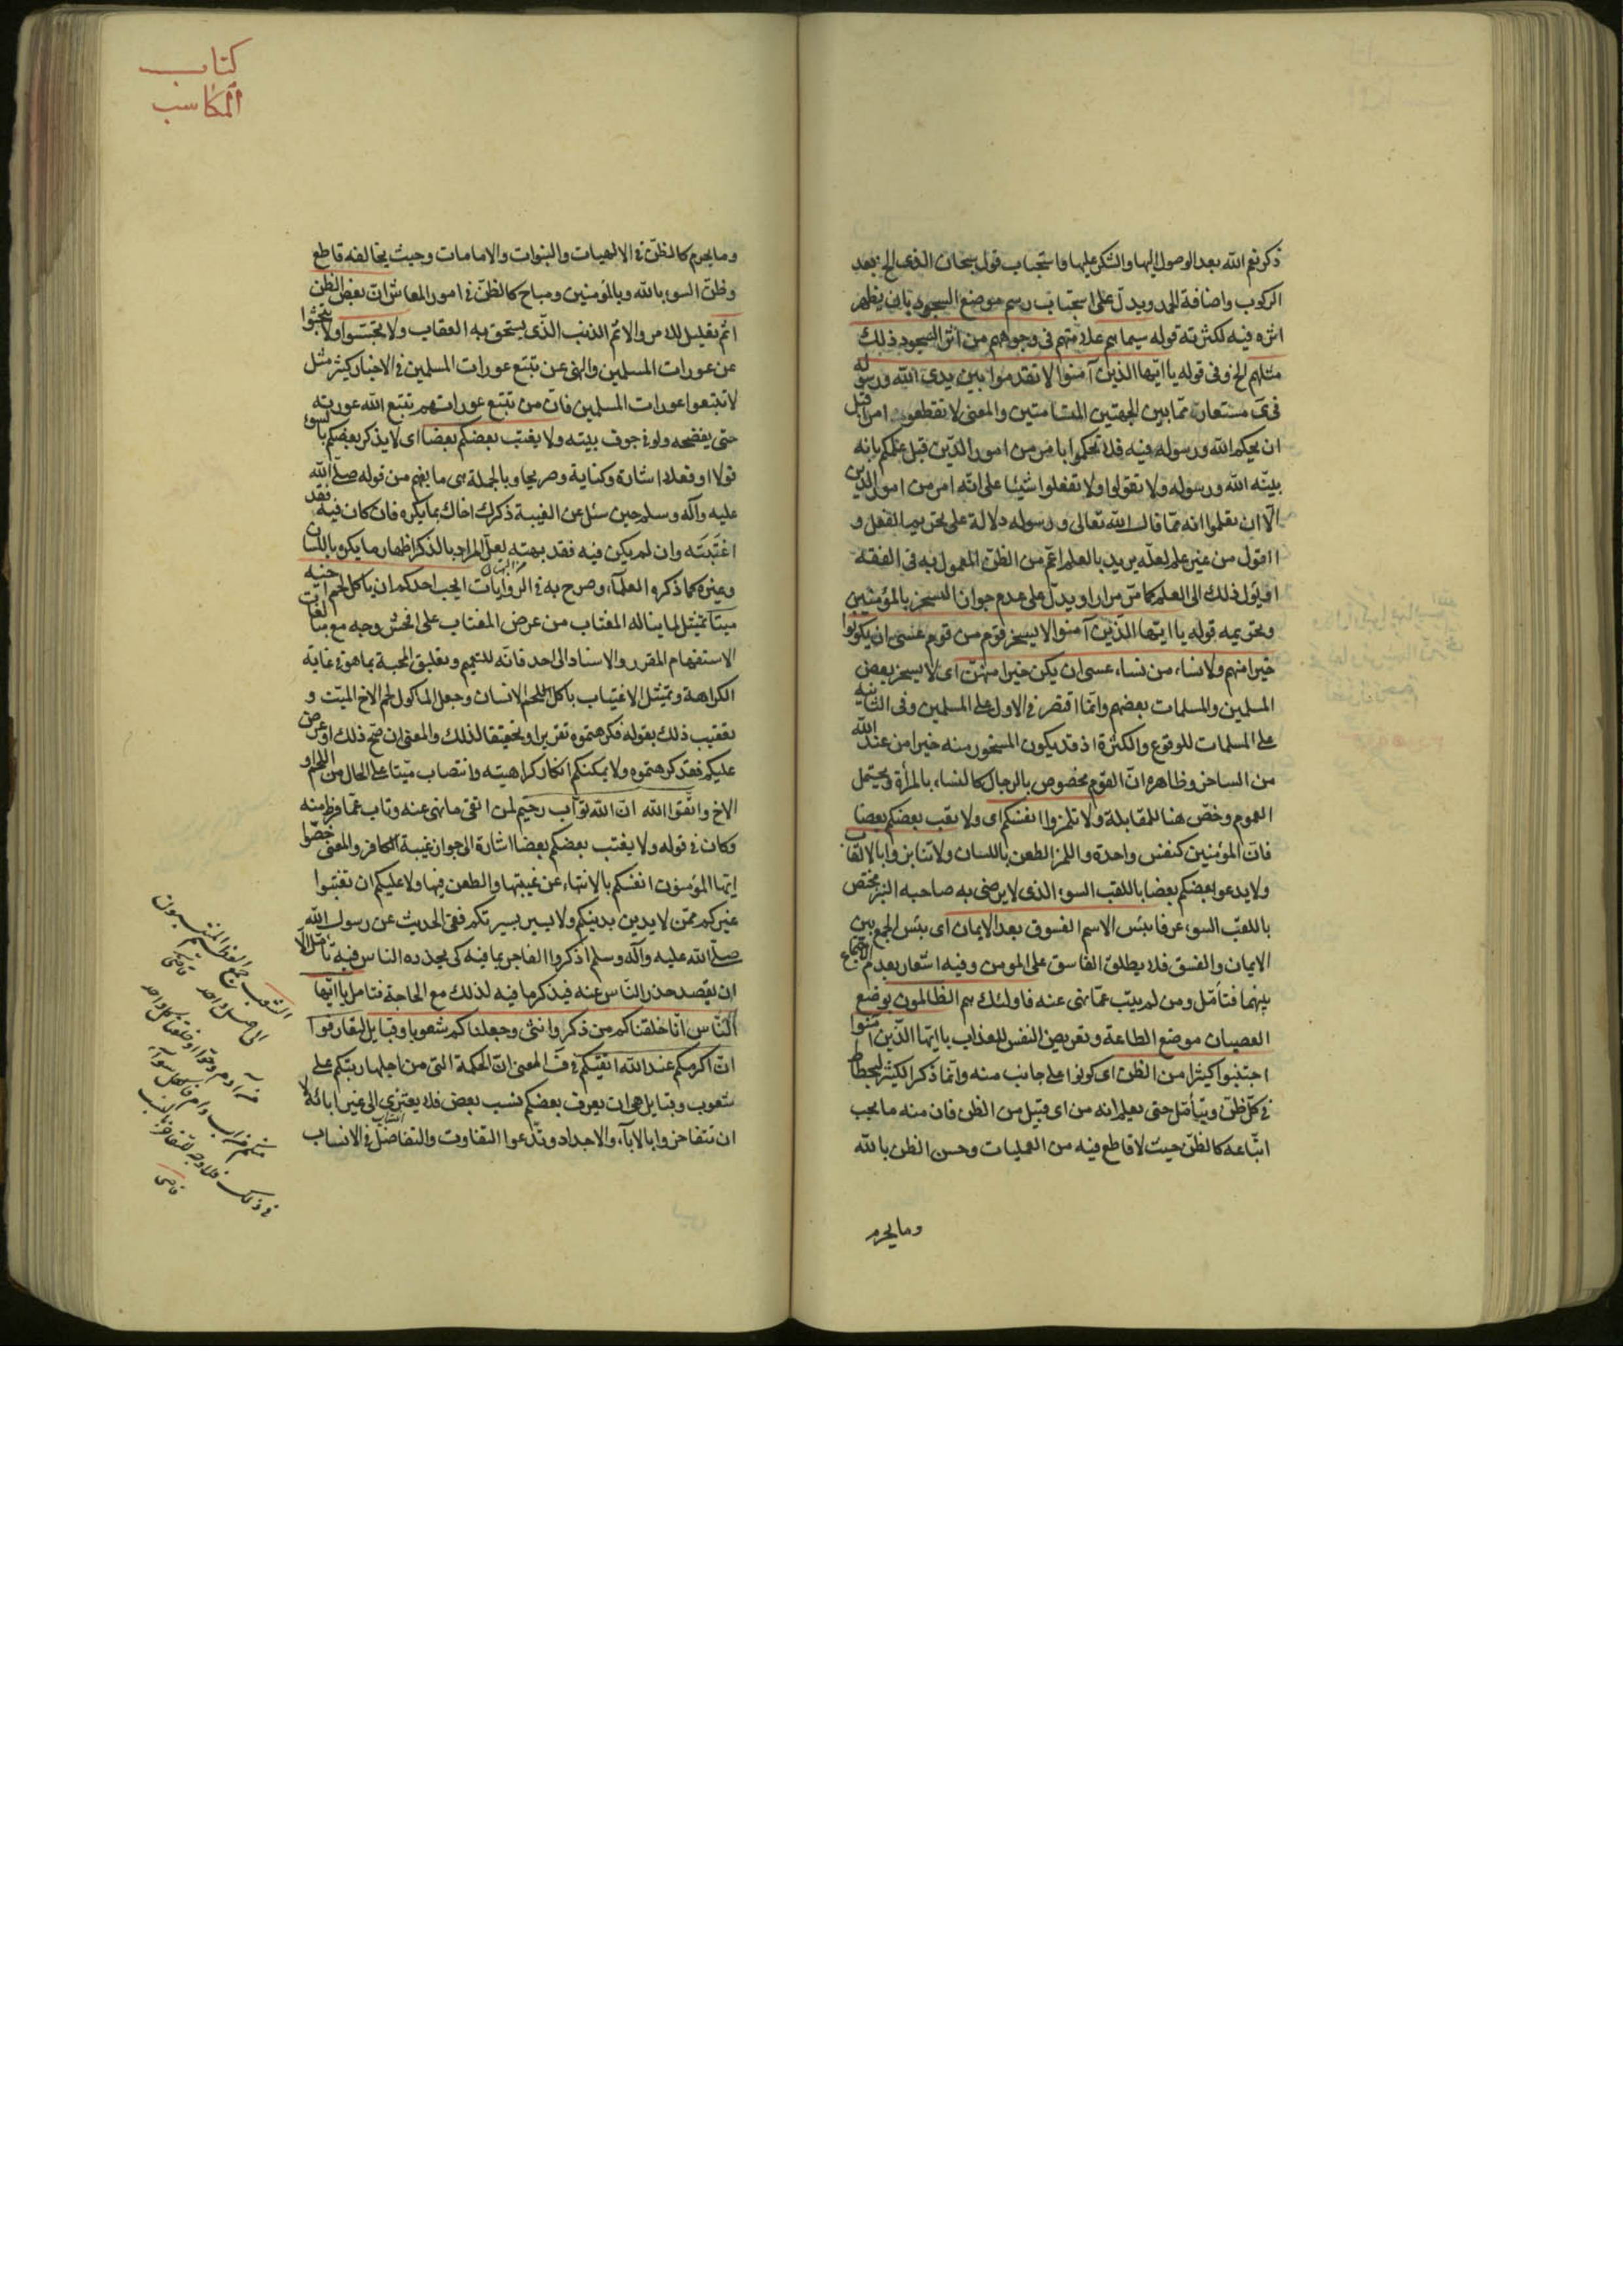 ذكر نعم الله بعد الوصول اليها والشكر عليها واستحباب قول سبحان الذى الخ بعد
الركوب واضافة الحمد ويدل على استحباب رسم موضع السجود بان يظهر
اثره فيه لكثرته قوله سيماهم علامتهم فى وجوههم من اثر السجود ذلك
مثلهم الخ وفى قوله يا ايها الذين آمنوا لا تقدموا بين يدى الله ورسوله
فى مستعار مما بين الجهتين المسامتين والمعنى لا تقطعوا امرا قبل
ان يحكم الله ورسوله فيه فلا تحكموا بامر من امور الدين قبل علمكم بانه
بينه الله ورسوله ولا تقولوا ولا تفعلوا شيئا على انه امر من امور الدين
الا ان تعلموا انه مما قال الله تعالى ورسوله دلالة على تحريم الفعل و
القول من غير علم لعله يريد بالعلم اعم من الظن المعمول به فى الفقه
او يؤل ذلك الى العلم كما مر مرارا ويدل على عدم جواز السخر بالمؤمنين
وتحريمه قوله يا ايها الذين آمنوا لا يسخر قوم من قوم عسى ان يكونوا
خيرا منهم ولا نساء من نساء عسى ان يكن خيرا منهن اى لا يسخر بعض
المسلمين والمسلمات ببعضهم وانما اقتصر فى الاول على المسلمين وفى الثانية
على المسلمات للوقوع والكثرة اذ قد يكون المسخور منه خيرا من عند الله
من الساخر وظاهره ان القوم مخصوص بالرجال كالنساء بالمرأة ويحتمل
العموم وخص هنا للمقابلة ولا تلمزوا انفسكم اى ولا يعب بعضكم بعضا
فان المؤمنين كنفس واحدة واللمز الطعن باللسان ولا تنابزوا بالالقاب
ولا يدعو بعضكم بعضا باللقب السوء الذى لا يرضى به صاحبه النبز مختص
باللقب السوء عرفا بئس الاسم الفسوق بعد الايمان اى بئس الجمع بين
الايمان والفسق فلا يطلق الفاسق على المومن وفيه اشعار بعدم الاجتماع
بينهما فتأمل ومن لم يتب عما نهى عنه فاولئك هم الظالمون بوضع
العصيان موضع الطاعة وتعريض النفس للعذاب يا ايها الذين آمنوا
اجتنبوا كثيرا من الظن اى كونوا على جانب منه وانما ذكر الكثير ليحتاط
فى كل ظن ويتأمل حتى يعلم انه من اى قبيل من الظن فان منه ما يجب
اتباعه كالظن حيث لا قاطع فيه من العمليات وحسن الظن بالله
وما يحرم
كتاب
المكاسب
وما يحرم كالظن فى الالهيات والنبوات والامامات وحيث يخالفه قاطع
وظن السوء بالله وبالمؤمنين ومباح كالظن فى امور المعاش ان بعض الظن
اثم تعليل للامر والاثم الذنب الذى يستحق به العقاب ولا تجسسوا ولا تبحثوا
عن عورات المسلمين والنهى عن تتبع عورات المسلمين فى الاخبار كثير مثل
لا تتبعوا عورات المسلمين فان من تتبع عوراتهم تتبع الله عورته
حتى يفضحه ولو فى جوف بيته ولا يغتب بعضكم بعضا اى لا يذكر بعضكم بالسوء
قولا او فعلا اشارة وكناية وصريحا وبالجملة هى ما يفهم من قوله صلى الله
عليه وآله وسلم حين سئل عن الغيبة ذكرك اخاك بما يكره فان كان فيه فقد
اغتبته وان لم يكن فيه فقد بهته لعل المراد بالذكر اظهار ما يكره باللسان
وغيره كما ذكره العلماء وصرح به فى الروايات ايحب احدكم ان ياكل لحم اخيه
ميتا تمثيل لما يناله المغتاب من عرض المغتاب على افحش وجه مع مبالغات
الاستفهام المقرر والاسناد الى احد فانه للتعميم وتعليق المحبة بما هو فى غاية
الكراهة وتمثيل الاغتياب باكل اللحم الانسان وجعل الماكول لحم الاخ الميت و
تعقيب ذلك بقوله فكرهتموه تقريرا وتحقيقا لذلك والمعنى ان صح ذلك او عرض
عليكم فقد كرهتموه ولا يمكنكم انكار كراهيته وانتصاب ميتا على الحال من اللحم او
الاخ واتقوا الله ان الله تواب رحيم لمن اتقى ما نهى عنه وتاب عما فرط منه
وكان فى قوله ولا يغتب بعضكم بعضا اشارة الى جواز غيبة الكافر والمعنى خصوا
ايها المؤمنون انفسكم بالانتهاء عن غيبتها والطعن فيها ولا عليكم ان تغتبوا
غيركم ممن لا يدين بدينكم ولا يسير بسيرتكم ففى الحديث عن رسول الله
صلى الله عليه وآله وسلم اذكروا الفاجر بما فيه كى يحذره الناس فيه تامل الا
ان يقصد حذر الناس عنه فيذكر ما فيه لذلك مع الحاجة فتامل يا ايها
الناس انا خلقناكم من ذكر وانثى وجعلناكم شعوبا وقبايل لتعارفوا
ان اكرمكم عند الله اتقيكم فى المعنى ان الحكمة التى من اجلها رتبكم على
شعوب وقبايل هى ان يعرف بعضكم نسب بعض فلا يعتزى الى غير ابائه لا
ان تتفاخروا بالاباء والاجداد وتدعوا التفاوت والتفاضل فى الانساب
الشعب جمع العظيم المنتسبون
الى اصل واحد قاضى
من آدم وحوا او خلقنا كل واحد
منكم من اب وام فالكل سواء
فى ذلك فلا وجه للتفاخر بالنسب
قاضى